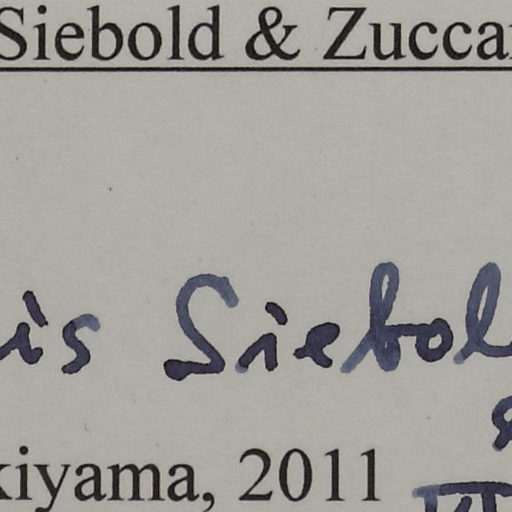 Siebold & Zucca
is Siebol
&
kiyama, 2011